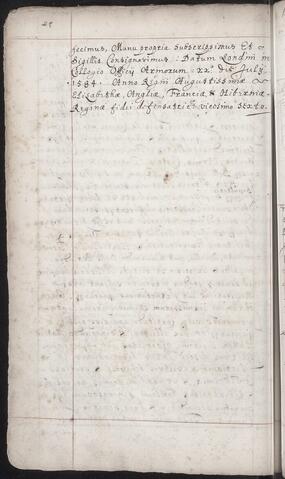 fecimus, Manu propria subscripsimus Et
Sigillis Consignavimus: Datum Londini in
Collegio Officij Armorum: xx: die July
1584. Anno Regni Augustissimæ &
Elizabethæ, Angliæ, Franciæ, & Hiberniæ
Reginæ fidei defensatricis vicesimo Sexto.